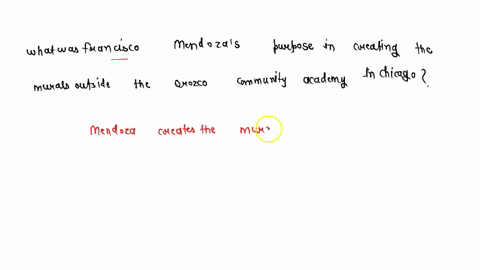 what was francisco Mendoza's purpose in creating the
murals outside the orozco community academy In chicago?
Mendoza creates the mur